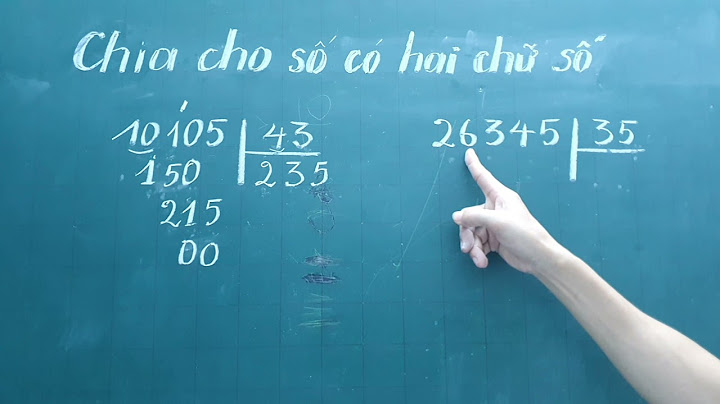 Chia cho số có hai chữ số
10105 43
150 235
215
00
26345 35